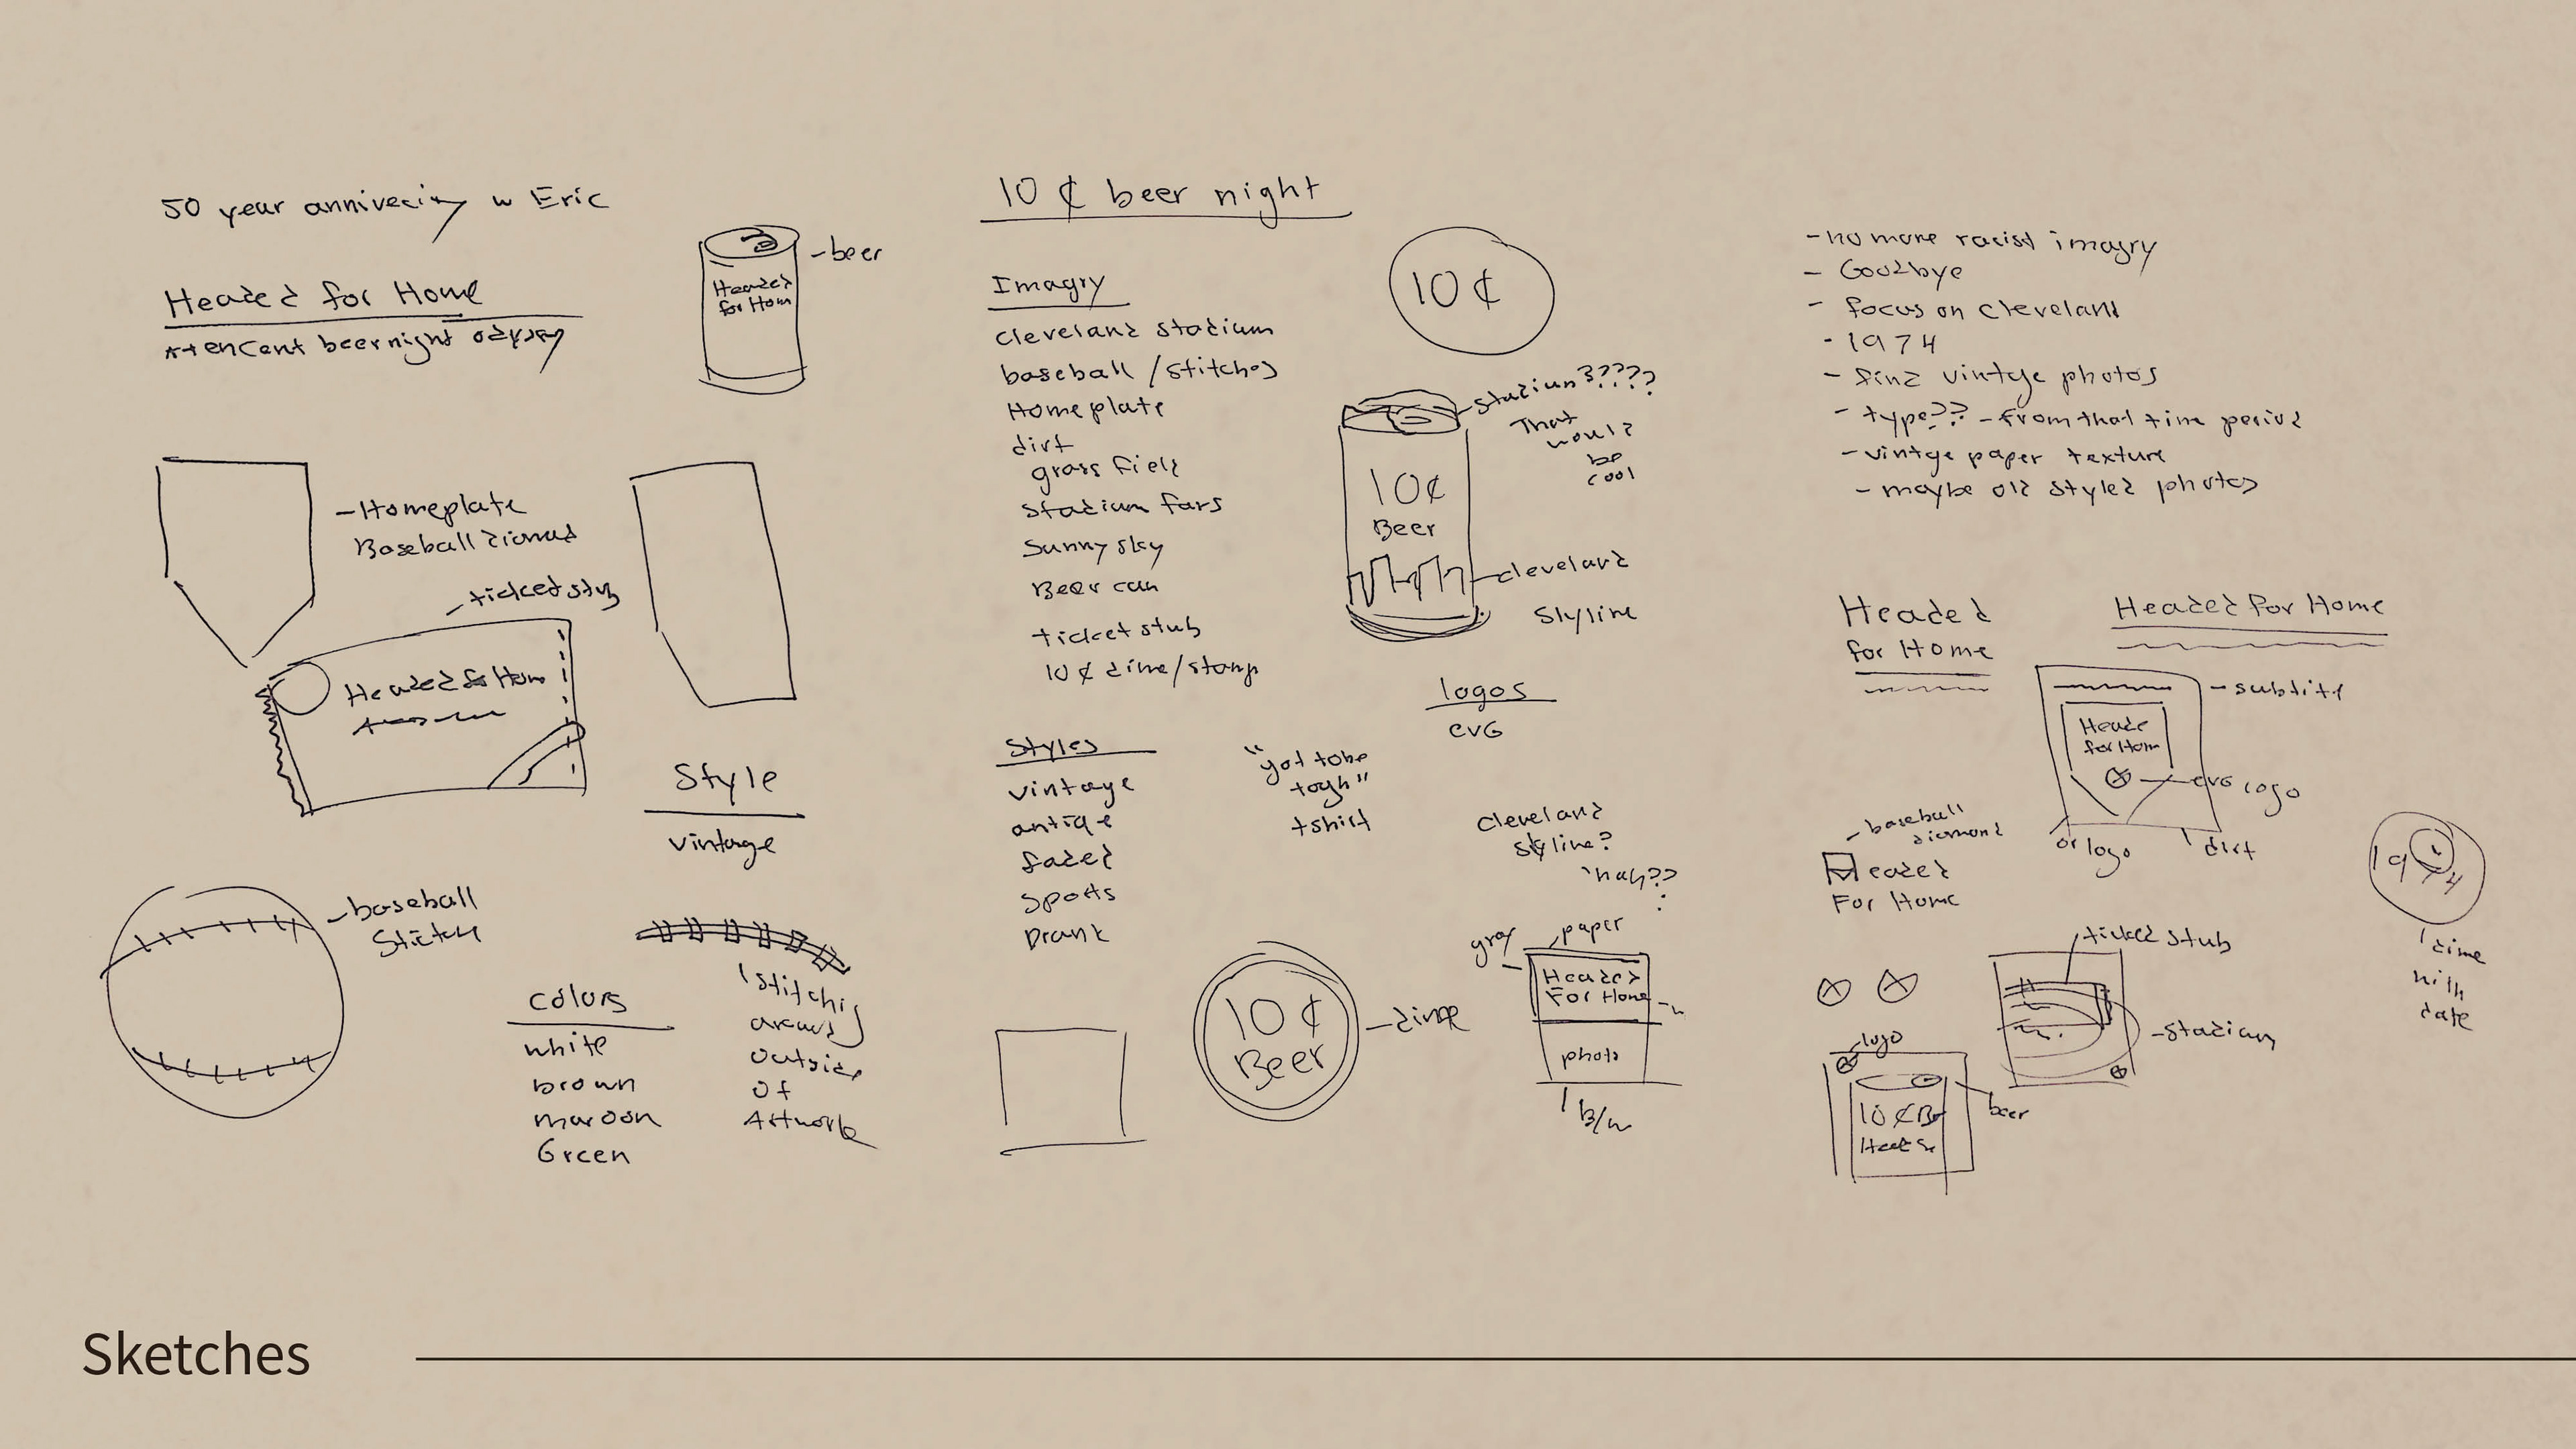 50 year anniverciry w Eric
Headed for Home
A ten cent beer night odyssey
-beer
Headed
for Hom
-Homeplate
Baseball
-ticket stub
Headed for Hom
Style
vintage
-baseball
Stitch
colors
white
brown
maroon
Green
stitching
around
outside
of
Artwork
10 ¢ beer night
Imagry
cleveland stadium
baseball / stitches
Homeplate
dirt
grass field
Stadium fans
Sunny sky
Beer can
ticket stub
10 ¢ dime/stamp
10 ¢
-stadium????
That
would
be
cool
10¢
Beer
-cleveland
Skyline
logos
evG
Styles
vintage
antiqe
faded
sports
Drank
"got tobe
togh"
tshirt
cleveland
skyline?
nah??
10 ¢
Beer
-dime
gray
paper
Headed
For Home
photo
B/w
-no more racist imagry
- Goodbye
- focus on cleveland
- 1974
- find vintge photos
- type?? - from that time period
- vintge paper texture
- maybe old styled photos
Headed
for Home
Headed for Home
-subtitl
Heade
for Hom
evG logo
or logo
dirt
-baseball
diamond
Headed
For Home
1974
dime
with
date
ticket stub
-stadium
logo
10 ¢ Be
beer
Sketches